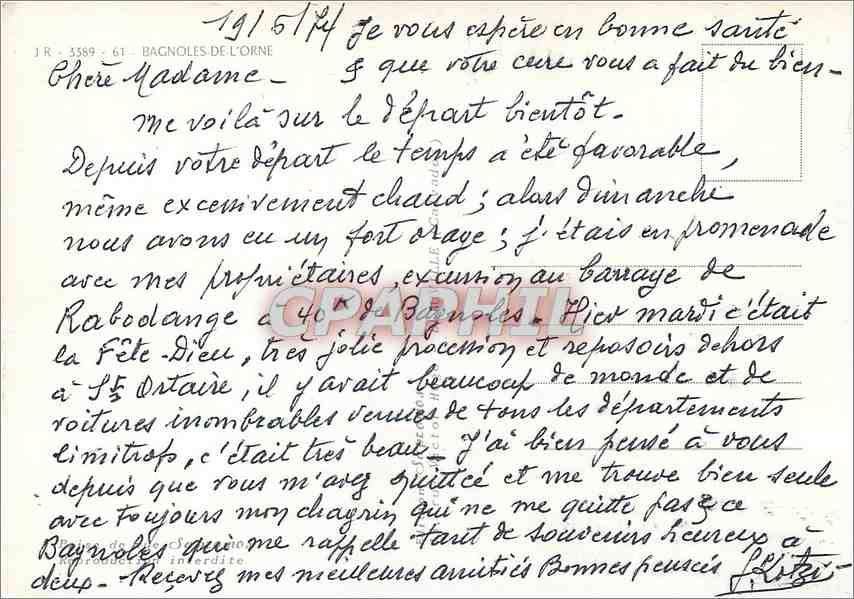 19/5/74 Je vous espère en bonne santé
J R - 3389 - 61 - BAGNOLES-DE-L'ORNE
Chère Madame - & que votre cure vous a fait du bien -
me voilà sur le départ bientôt.
Depuis votre départ le temps a été favorable,
même excessivement chaud ; alors dimanche
nous avons eu un fort orage ; j'étais en promenade
avec mes propriétaires, excursion au barrage de
Rabodange à 40k de Bagnoles. Hier mardi c'était
la Fête-Dieu, très jolie procession et reposoirs dehors
à St Ortaire, il y avait beaucoup de monde et de
voitures inombrables venues de tous les départements
limitrofs, c'était très beau. J'ai bien pensé à vous
depuis que vous m'avez quittée et me trouve bien seule
avec toujours mon chagrin qui ne me quitte pas & ce
Bagnoles qui me rappelle tant de souvenirs heureux à
deux - Recevez mes meilleures amitiés Bonnes pensées
Reproduction interdite
CPAPHIL